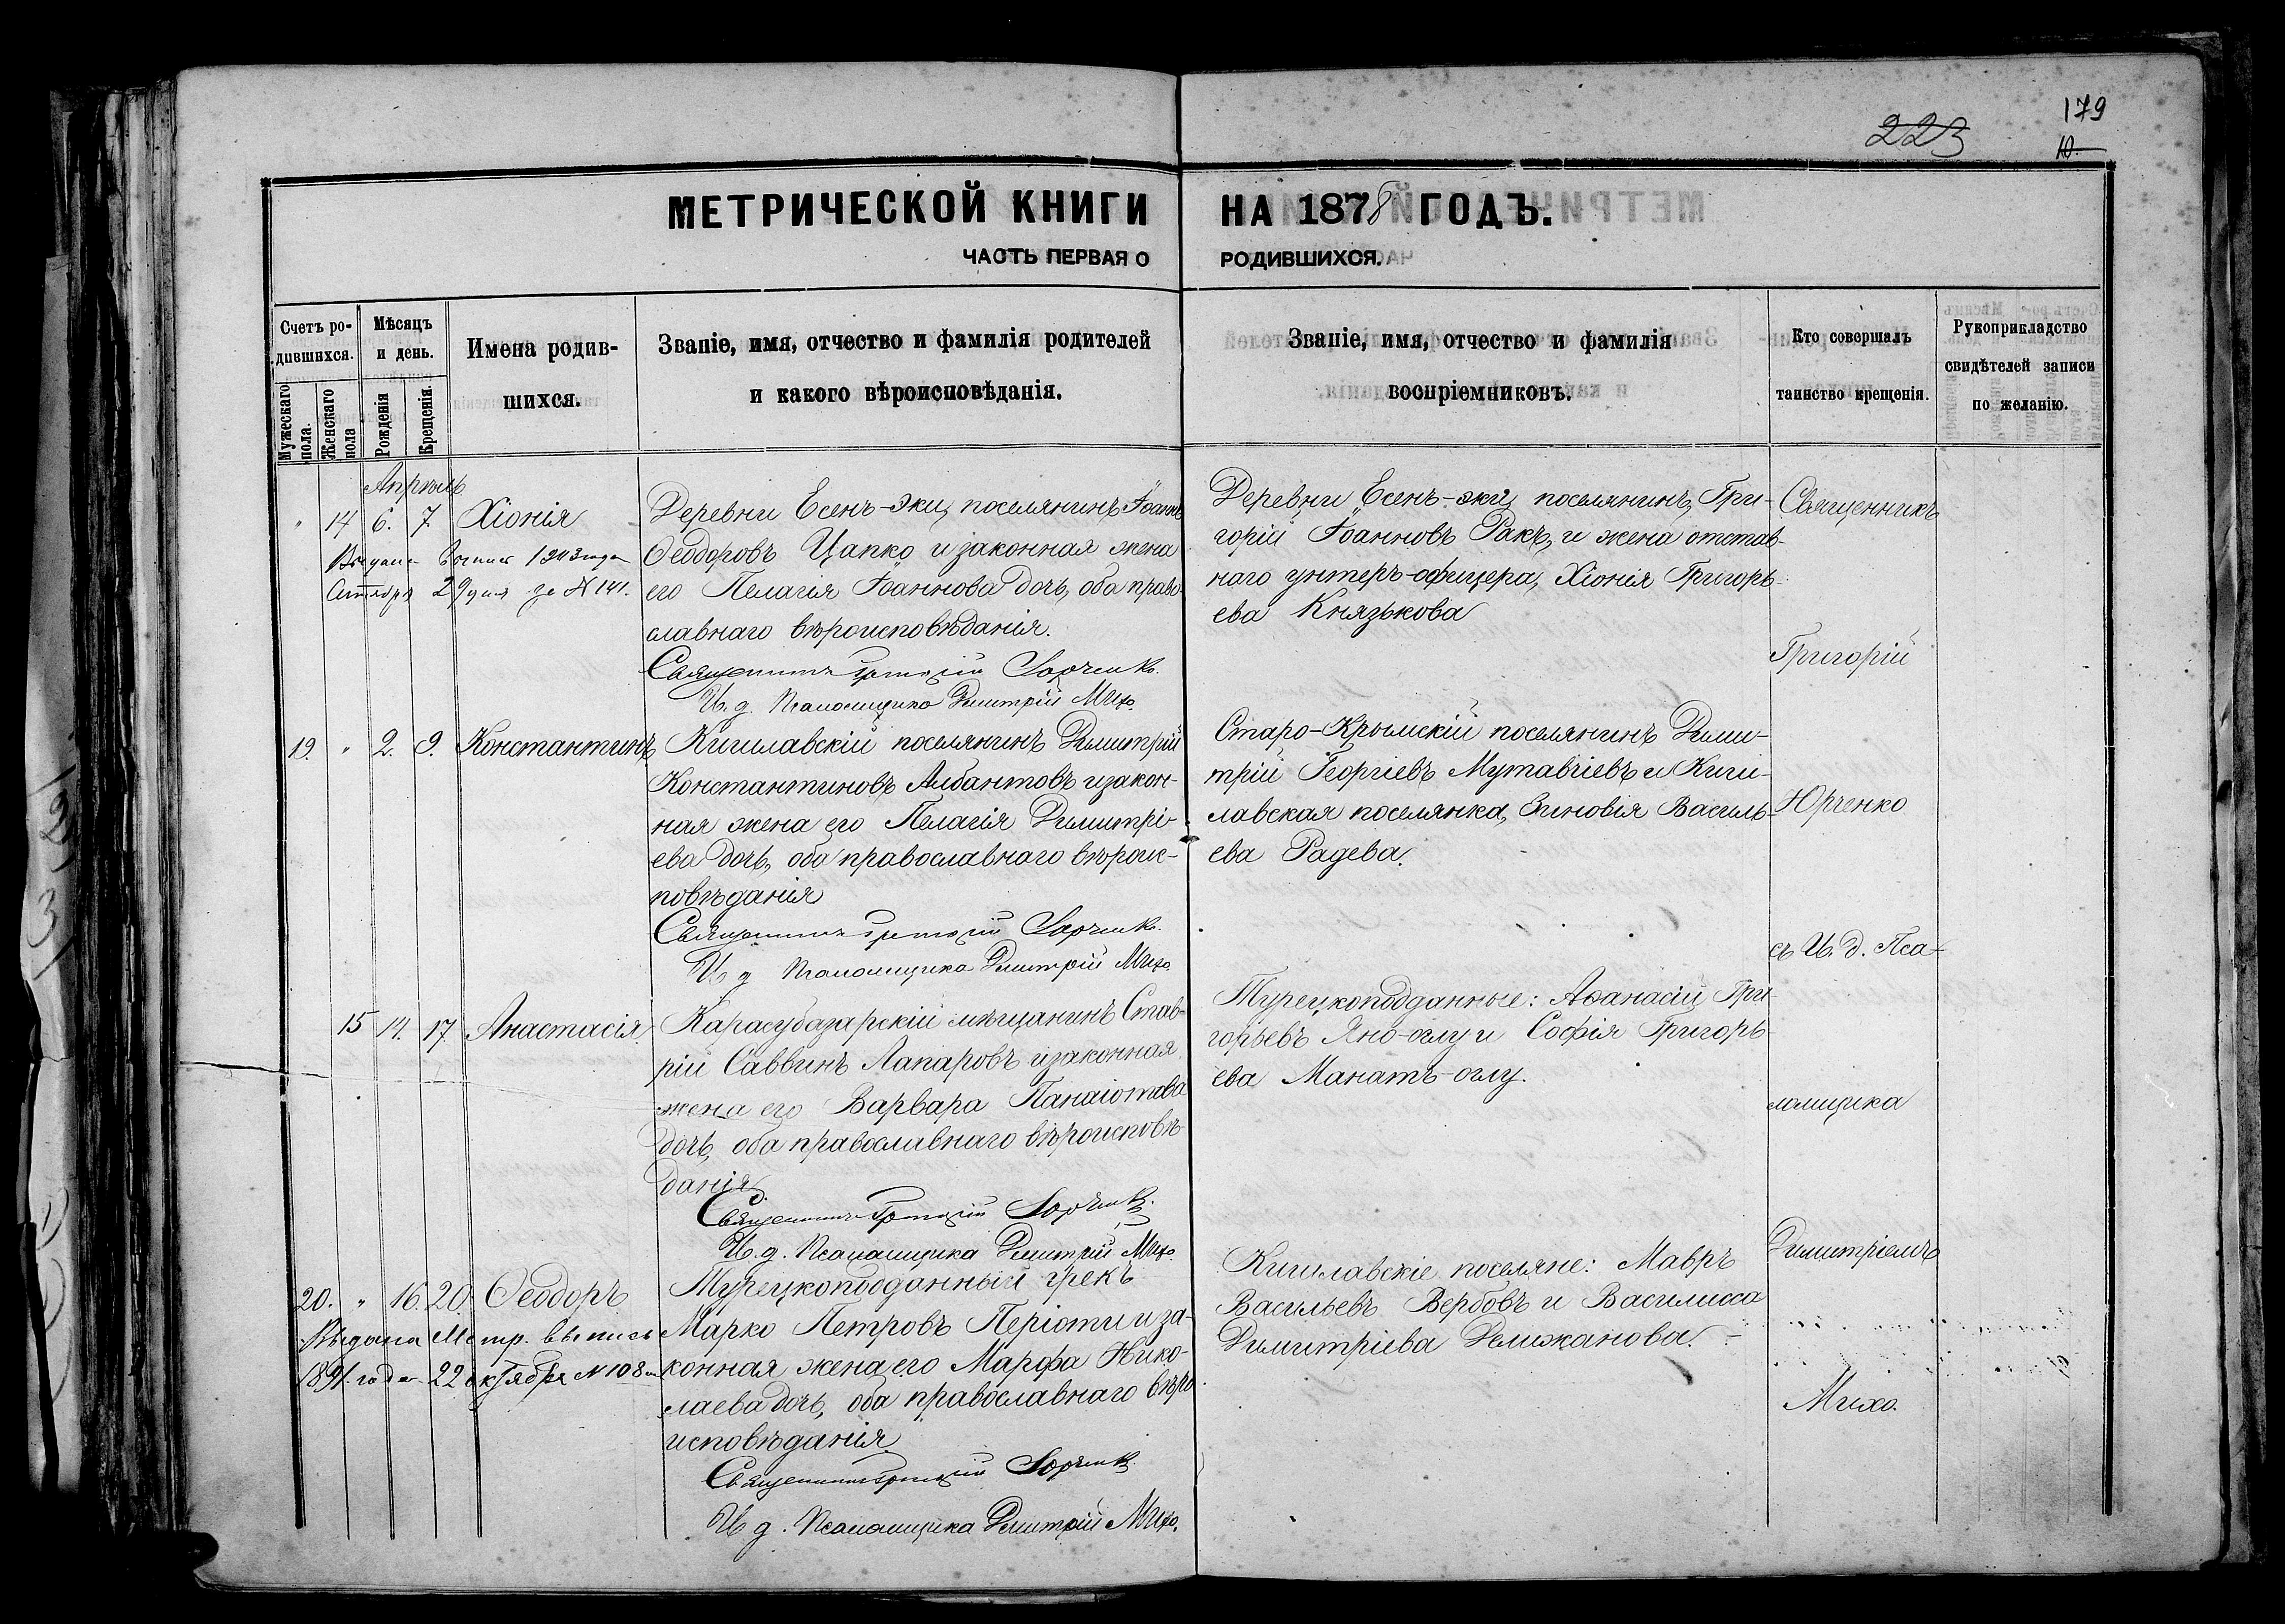 179
223
10.
МЕТРИЧЕСКОЙ КНИГИ НА 1878 ГОДЪ.
ЧАСТЬ ПЕРВАЯ О РОДИВШИХСЯ.
Счетъ ро-
дившихся.
Мужескаго пола.
Женскаго пола
Мѣсяцъ
и день.
Рожденія
Крещенія.
Имена родив-
шихся.
Званіе, имя, отчество и фамилія родителей
и какого вѣроисповѣданія.
Званіе, имя, отчество и фамилія
воспріемниковъ.
Кто совершалъ
таинство крещенія.
Рукоприкладство
свидѣтелей записи
по желанію.
Апрѣль
" 14 6. 7 Хіонія
Выдана 1903 года
29 дня за № 141.
Деревни Есенъ-эки, поселянинъ Іоаннъ
Ѳеодоровъ Цапко и законная жена
его Пелагія Іоаннова дочь, оба право-
славнаго вѣроисповѣданія.
Священникъ Григорій Юрченко.
И. д. Псаломщика Димитрій Михо.
Деревни Есенъ-эки, поселянинъ, Гри-
горій Іоанновъ Ракъ, и жена отстав-
наго унтеръ-офицера, Хіонія Григорь-
ева Князькова
19. " 2. 9. Константинъ
Кишлавскій поселянинъ Димитрій
Константиновъ Албантовъ и закон-
ная жена его Пелагія Димитрі-
ева дочь, оба православнаго вѣроис-
повѣданія
Священникъ Григорій Юрченко.
И д Псаломщика Димитрій Михо.
Старо-Крымскій поселянинъ Дими-
трій Георгіевъ Мутавчіевъ и Киш-
лавская поселянка, Зиновія Василь-
ева Радева.
15 14. 17 Анастасія
Карасубазарскій мѣщанинъ Став-
рій Саввинъ Лапаровъ и законная
жена его Варвара Панаіотова
дочь, оба православнаго вѣроисповѣ-
данія
Священникъ Григорій Юрченко.
И. д. Псаломщика Димитрій Михо.
Турецкоподданные: Аѳанасій Гри-
горьевъ Яно-оглу и Софія Григорь-
ева Манатъ-оглу.
20. " 16. 20. Ѳеодоръ
Выдана Метр. выпись
1891 года 22 октября № 108
Турецкоподданный грекъ
Марко Петровъ Періоти и за-
конная жена его Марфа Нико-
лаева дочь, оба православнаго вѣро-
исповѣданія.
Священникъ Григорій Юрченко.
И д. Псаломщика Димитрій Михо.
Кишлавскіе поселяне: Мавръ
Васильевъ Вербовъ и Василисса
Димитріева Делижанова.
Священникъ
Григорій
Юрченко
съ И. д. Пса-
ломщика
Димитріемъ
Михо.